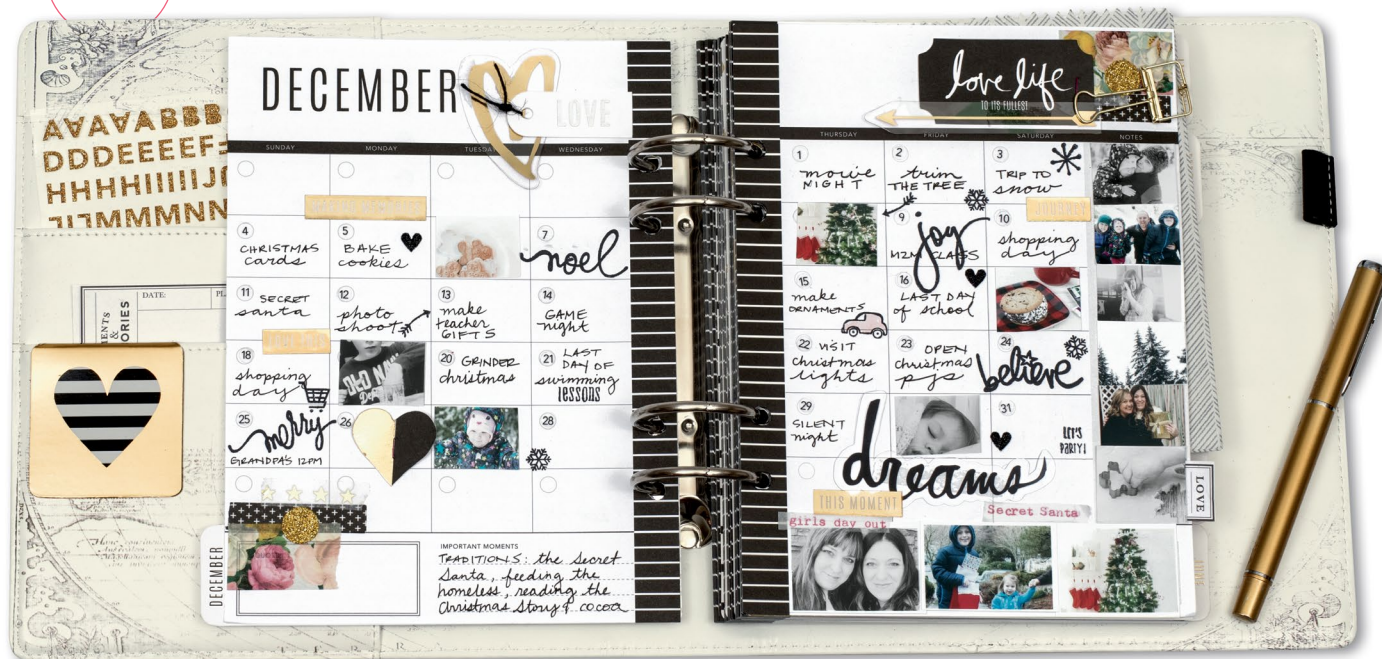 AVAVABBB
DDDEEEEF
HHHHIIIIJ
MMMNN
DATE:
DECEMBER
LOVE
SUNDAY
MONDAY
TUESDAY
WEDNESDAY
4
CHRISTMAS
cards
5
BAKE
cookies
7
noel
11 SECRET
santa
12
photo
shoot
13
make
teacher
GIFTS
14
GAME
night
18
shopping
day
20 GRINDER
christmas
21 LAST
DAY OF
swimming
lessons
25
merry
GRANDPA'S 12PM
26
28
DECEMBER
IMPORTANT MOMENTS
TRADITIONS: the Secret
Santa, feeding the
homeless, reading the
Christmas Story & cocoa
love life
TO ITS FULLEST
THURSDAY
FRIDAY
SATURDAY
NOTES
1
movie
NIGHT
2
trim
THE TREE
3
TRIP TO
snow
9
joy
CLASS
10
shopping
day
15
make
ORNAMENTS
16
LAST DAY
of school
22 VISIT
christmas
lights
23 OPEN
christmas
pjs
24
believe
29
SILENT
night
31
LET'S
PARTY!
dreams
THIS MOMENT
girls day out
Secret Santa
LOVE